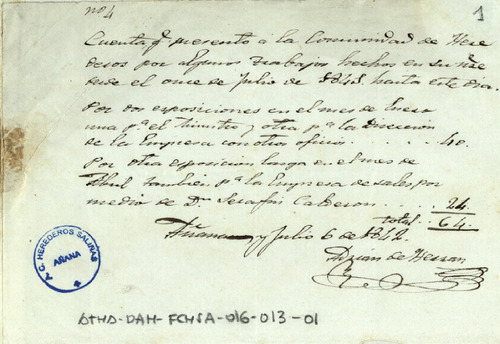 nº 4
1
Cuenta q presento á la Comunidad de Here
deros por algunos trabajos hechos en su
desde el once de Julio de 1841 hasta este dia.
Por dos exposiciones en el mes de Enero
una pª el Ministro y otra pª la Direccion
de la Empresa con otros oficios 40.
Por otra exposicion larga en el mes de
Abril tambien pª la Empresa de sales por
medio de Dn Serafin Calderon 24
total 64.
Añana y Julio 6 de 1842.
de Herran
G. HEREDEROS SALINAS
AÑANA
ATHA-DAH-FCHSA-016-013-01